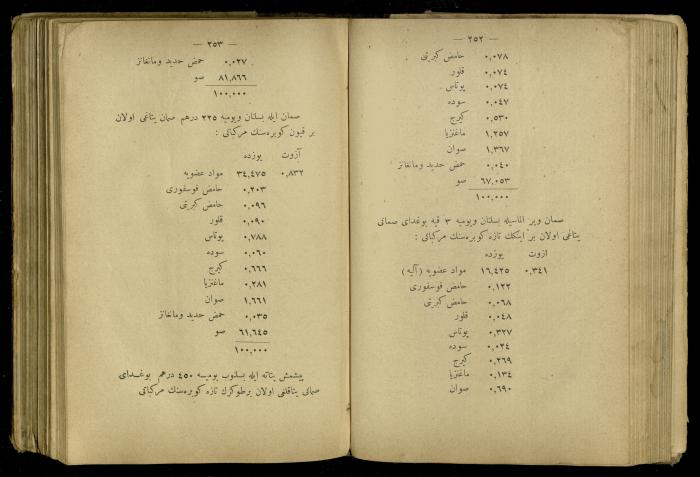 — ٢٥٢ —
٠,٠٧٨ حامض كبريتى
٠,٠٧٤ قلور
٠,٠٧٤ پوتاس
٠,٠٤٧ سوده
٠,٥٣٠ كيرج
١,٢٥٧ ماغنزيا
١,٣٦٧ صوان
٠,٠٤٠ حمض حديد ومانغانز
٦٧,٠٥٣ صو
١٠٠,٠٠٠
صمان وير الماسيله بسلنان ويوميه ٣ قيه بوغداى صمانى
يتاغى اولان بر اينكك تازه كوبره‌سنك مركباتى :
ازوت يوزده
٠,٣٤١ ١٦,٤٢٥ مواد عضويه (آليه)
٠,١٢٢ حامض فوسفورى
٠,٠٦٨ حامض كبريتى
٠,٠٤٨ قلور
٠,٣٢٧ پوتاس
٠,٠٢٤ سوده
٠,٢٦٩ كيرج
٠,١٣٤ ماغنزيا
٠,٦٩٠ صوان
— ٢٥٣ —
٠,٠٢٧ حمض حديد ومانغانز
٨١,٨٦٦ صو
١٠٠,٠٠٠
صمان ايله بسلنان ويوميه ٢٢٥ درهم صمان يتاغى اولان
بر قيون كوبره‌سنك مركباتى :
آزوت يوزده
٠,٨٣٢ ٣٤,٤٧٥ مواد عضويه
٠,٢٠٣ حامض فوسفورى
٠,٠٩٦ حامض كبريتى
٠,٠٩٠ قلور
٠,٧٨٨ پوتاس
٠,٠٦٠ سوده
٠,٦٦٦ كيرج
٠,٢٨١ ماغنزيا
١,٦٦١ صوان
٠,٠٣٥ حمض حديد ومانغانز
٦١,٦٤٥ صو
١٠٠,٠٠٠
پيشمش پتاته ايله بسلنوب يوميه ٤٥٠ درهم بوغداى
صمانى يتاقلغى اولان بر طوكزك تازه كوبره‌سنك مركباتى